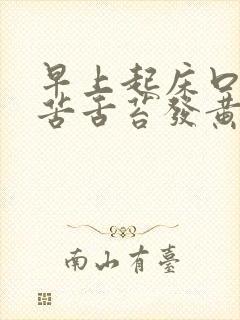 早上起床口
苦舌苔發黄
南山有臺